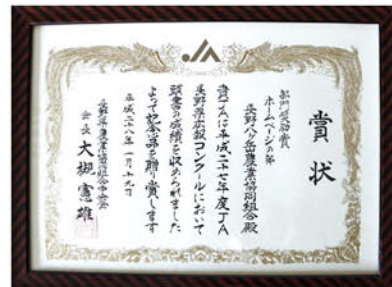 賞状
部門奨励賞
ホームページの部
長野八ヶ岳農業協同組合殿
貴JAは平成二十七年度JA
長野県広報コンクールにおいて
頭書の成績を収められました
よって記念品を贈り賞します
平成二十八年一月十九日
長野県農業協同組合中央会
会長 大槻憲雄